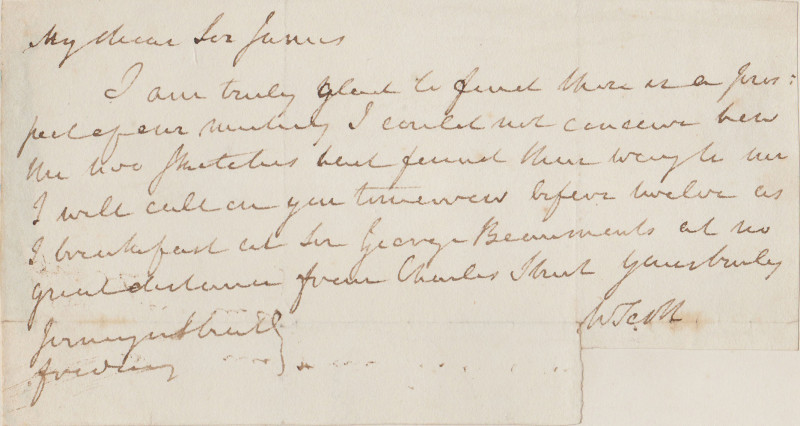 My dear Sir James
I am truly glad to find there is a pros=
pect of our meeting I could not conceive how
the two sketches had found their way to me
I will call on you tomorrow before twelve as
I breakfast at Sir George Beaumonts at no
great distance from Charles Street Yours truly
W Scott
Jermyn Street
friday